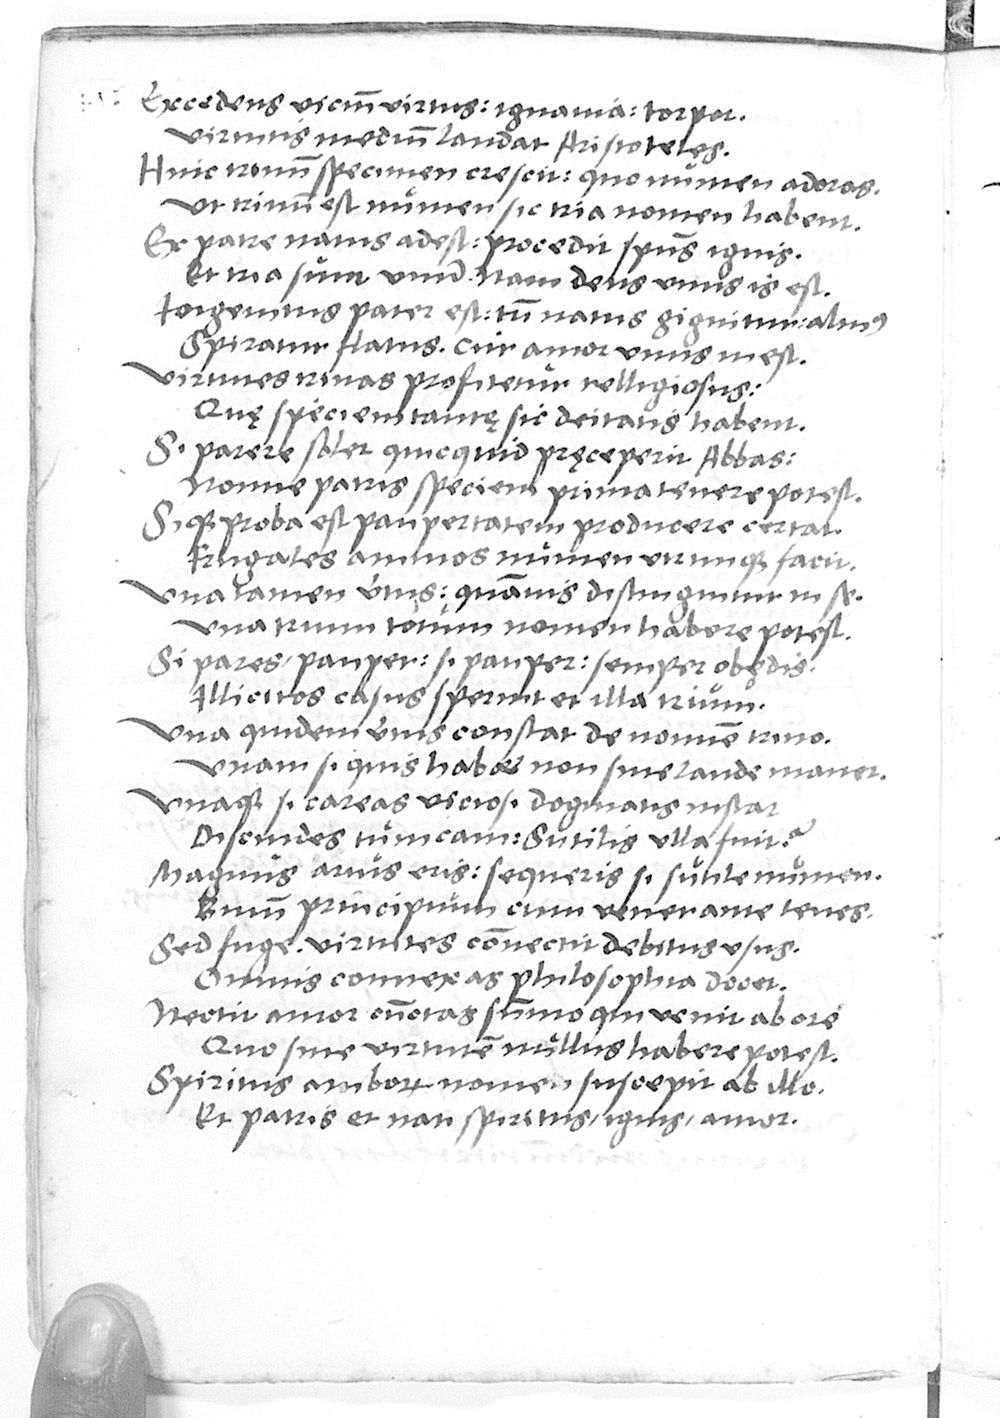 Excedens viciũ virtus: ignauia: torpor.
Virtutis mediũ laudat Aristoteles.
Huic trinũ specimen crescit: quo numen adoras.
Vt trinũ est numen sic tria nomen habent.
Ex patre natus adest: procedit spũs ignis.
Et tria sunt vnũ. Nam deus vnus is est.
Ingenitus pater est: tũ natus gignitur: almꝰ
Spiratur flatus. Cur amor vnus inest.
Virtutes trinas profitetur relligiosus:
Quę speciem tantę sic deitatis habent.
Si parere solet quicquid pręceperit Abbas:
Nonne patris speciem prima tenere potest.
Siqꝫ proba est paupertatem producere certat.
Frugales animos numen vtrunqꝫ facit.
Vna tamen virtus: quãuis distinguitur in se.
Vna trium totum nomen habere potest.
Si pares/ pauper: si pauper: semper obędis:
Illicitos casus spernit et illa trium.
Vna quidem virtus constat de nomĩe trino.
Vnam si quis habet non sine laude manet.
Vnaqꝫ si careas viciosi dogmatis instar
Discindes tunicam: Sutilis vlla fuit?
Magnus arius eris: sequeris si sutile numen.
Binũ principium cum venerante tenes.
Sed fuge. virtutes cõnectit debitus vsus.
Omnis connexas philosophia docet.
Nectit amor cũctas sũmo qui venit ab ore
Quo sine virtutẽ nullus habere potest.
Spiritus amboꝝ nomen suscepit ab illo.
Et patris et nati spiritus/ ignis/ amor.